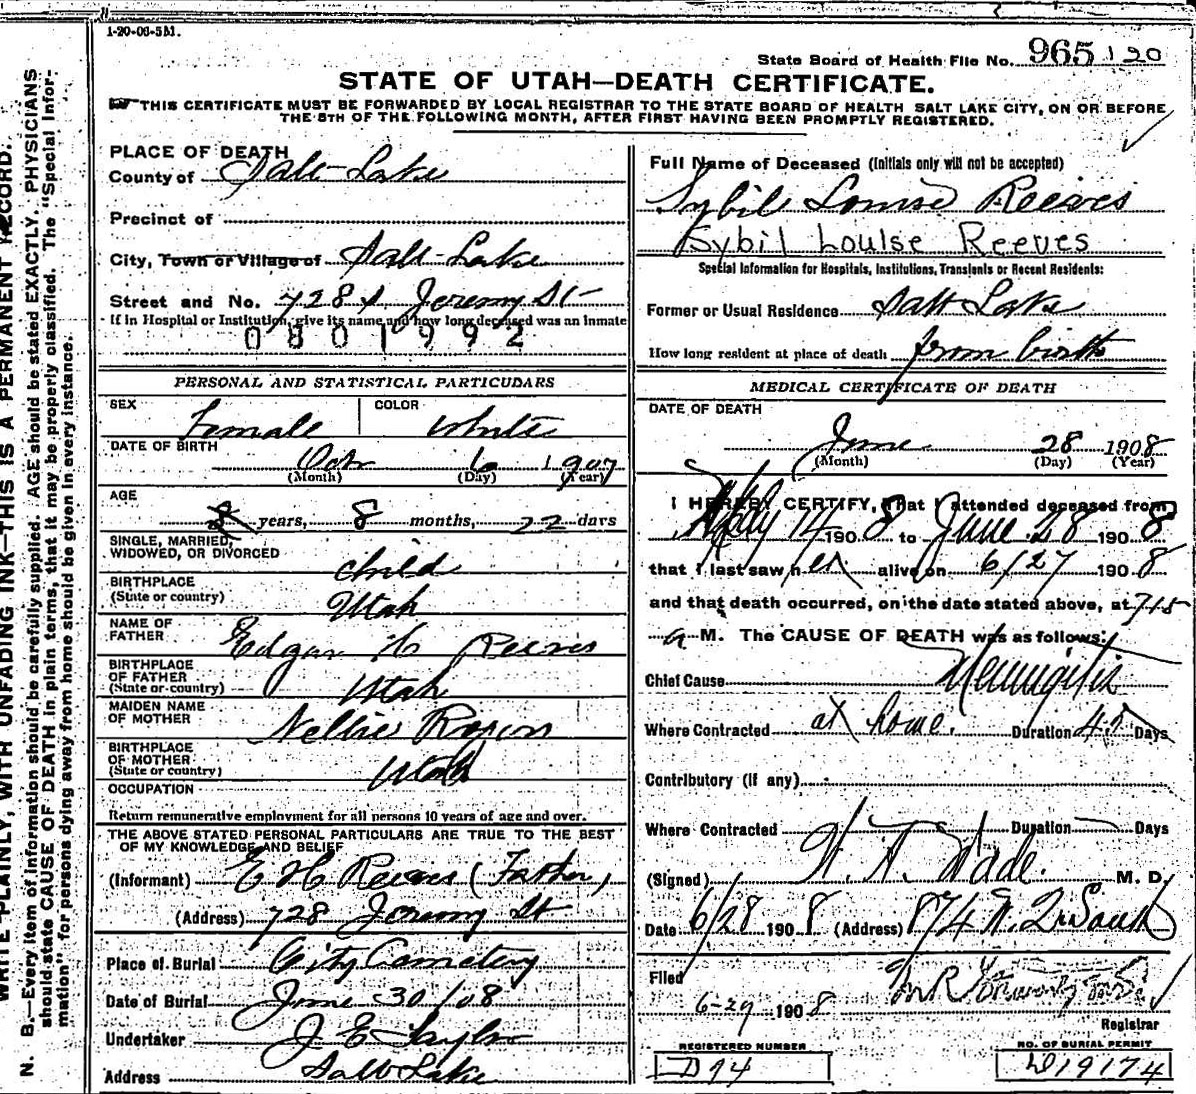 1-20-06-5M.
State Board of Health File No. 965 120
STATE OF UTAH—DEATH CERTIFICATE.
THIS CERTIFICATE MUST BE FORWARDED BY LOCAL REGISTRAR TO THE STATE BOARD OF HEALTH SALT LAKE CITY, ON OR BEFORE
THE 5TH OF THE FOLLOWING MONTH, AFTER FIRST HAVING BEEN PROMPTLY REGISTERED.
WRITE PLAINLY, WITH UNFADING INK—THIS IS A PERMANENT RECORD.
N. B.—Every item of information should be carefully supplied. AGE should be stated EXACTLY. PHYSICIANS
should state CAUSE OF DEATH in plain terms, that it may be properly classified. The "Special Infor-
mation" for persons dying away from home should be given in every instance.
PLACE OF DEATH
County of Salt Lake
Precinct of
City, Town or Village of Salt Lake
Street and No. 728 Jeremy St
If in Hospital or Institution, give its name and how long deceased was an inmate
0801992
PERSONAL AND STATISTICAL PARTICULARS
SEX Female COLOR White
DATE OF BIRTH
Oct 6 1907
(Month) (Day) (Year)
AGE
years, 8 months, 22 days
SINGLE, MARRIED,
WIDOWED, OR DIVORCED child
BIRTHPLACE
(State or country) Utah
NAME OF
FATHER Edgar H Reeves
BIRTHPLACE
OF FATHER
(State or country) Utah
MAIDEN NAME
OF MOTHER Nellie
BIRTHPLACE
OF MOTHER
(State or country) Utah
OCCUPATION
Return remunerative employment for all persons 10 years of age and over.
THE ABOVE STATED PERSONAL PARTICULARS ARE TRUE TO THE BEST
OF MY KNOWLEDGE AND BELIEF
(Informant) E H Reeves (Father)
(Address) 728 Jeremy St
Place of Burial City Cemetery
Date of Burial June 30/08
Undertaker J E Taylor
Address Salt Lake
Full Name of Deceased (Initials only will not be accepted)
Sybil Louise Reeves
Sybil Louise Reeves
Special Information for Hospitals, Institutions, Transients or Recent Residents:
Former or Usual Residence Salt Lake
How long resident at place of death from birth
MEDICAL CERTIFICATE OF DEATH
DATE OF DEATH
June 28 1908
(Month) (Day) (Year)
I HEREBY CERTIFY, That I attended deceased from
14 190 8 to June 28 190 8
that I last saw h er alive on 6/27 190 8
and that death occurred, on the date stated above, at 7 15
a M. The CAUSE OF DEATH was as follows:
Chief Cause Meningitis
Where Contracted at home. Duration Days
Contributory (if any)
Where Contracted Duration Days
(Signed) Wade. M. D.
Date 6/28 190 8 (Address) 874
Filed
6-29 190 8
Registrar
REGISTERED NUMBER
D94
NO. OF BURIAL PERMIT
D19174